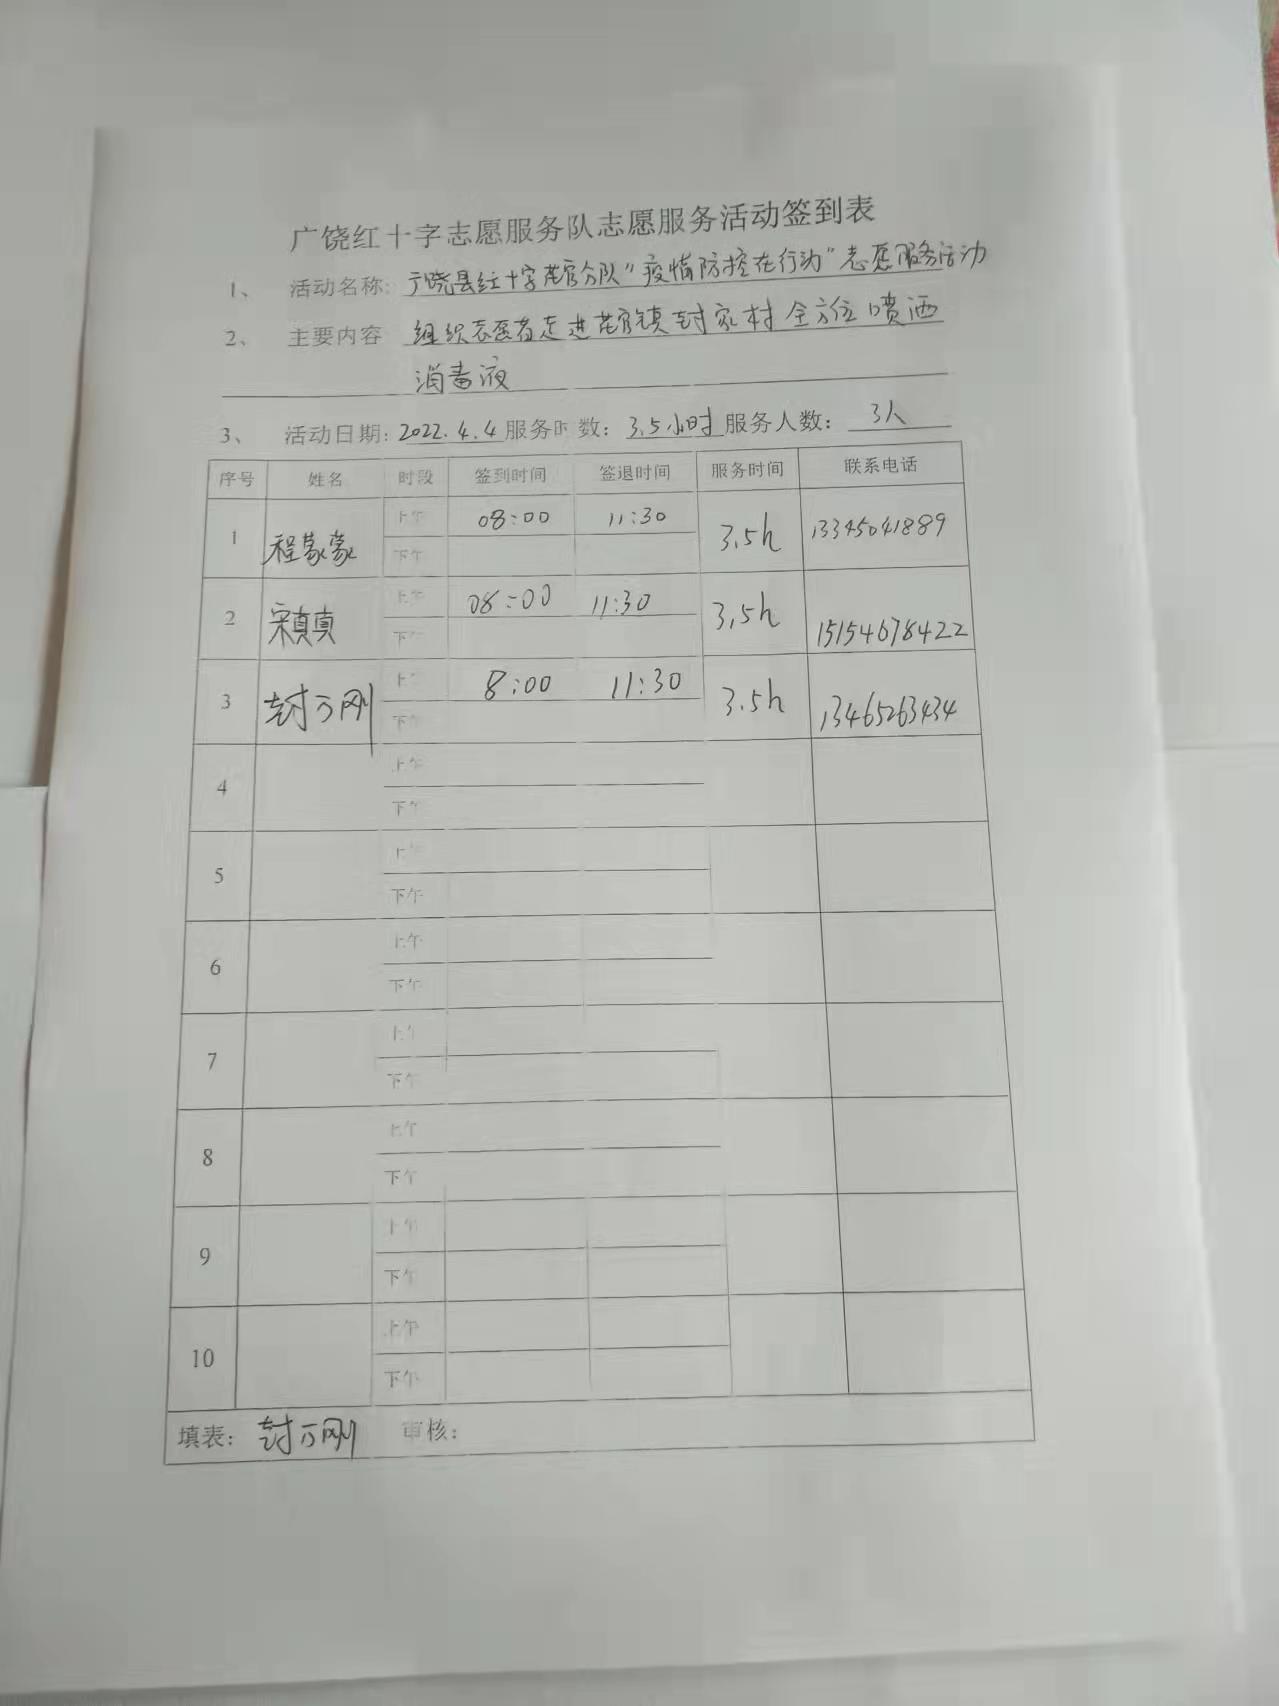 广饶红十字志愿服务队志愿服务活动签到表
1、 活动名称: 广饶县红十字花官分队“疫情防控在行动”志愿服务活动
2、 主要内容 组织志愿者走进花官镇封家村全方位喷洒
消毒液
3、 活动日期: 2022.4.4 服务时数: 3.5小时 服务人数: 3人
序号 姓名 时段 签到时间 签退时间 服务时间 联系电话
1 程蒙蒙 上午 08:00 11:30 3.5h 13345041889
下午
2 宋真真 上午 08:00 11:30 3.5h 15154678422
下午
3 封万刚 上午 8:00 11:30 3.5h 13465263434
下午
4 上午
下午
5 上午
下午
6 上午
下午
7 上午
下午
8 上午
下午
9 上午
下午
10 上午
下午
填表: 封万刚 审核: